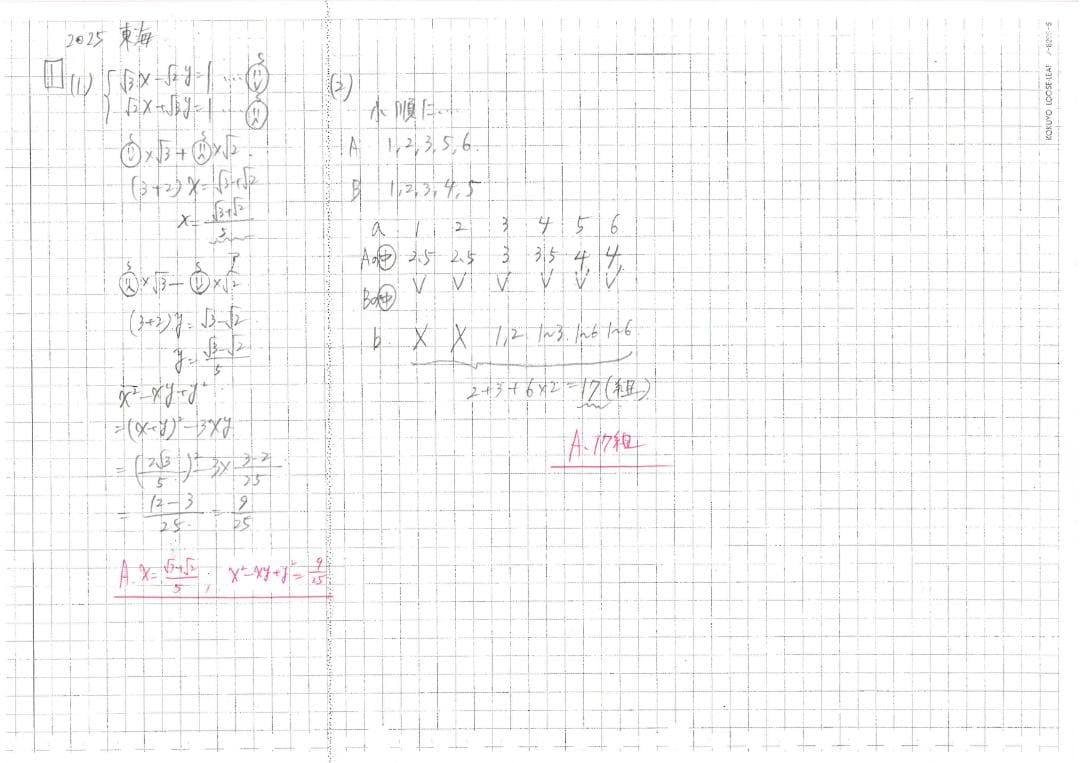 2025 東海
1 (1) { √3x-√2y=1 …
√2x+√3y=1 …
×√3+ ×√2.
(3+2)x=√3+√2
x=(√3+√2)/5
×√3- ×√2
(3+2)y=√3-√2
y=(√3-√2)/5
x²-xy+y²
=(x+y)²-3xy
=(2√3/5)²-3×(3-2)/25
=(12-3)/25=9/25
A. x=(√3+√2)/5, x²-xy+y²=9/25
(2)
小順に…
A 1,2,3,5,6.
B 1,2,3,4,5
a 1 2 3 4 5 6
Aの中 2.5 2.5 3 3.5 4 4
V V V V V V
Bの中
b. X X 1,2. 1~3. 1~6 1~6
2+3+6×2=17(組)
A. 17組
KOKUYO LOOSE-LEAF